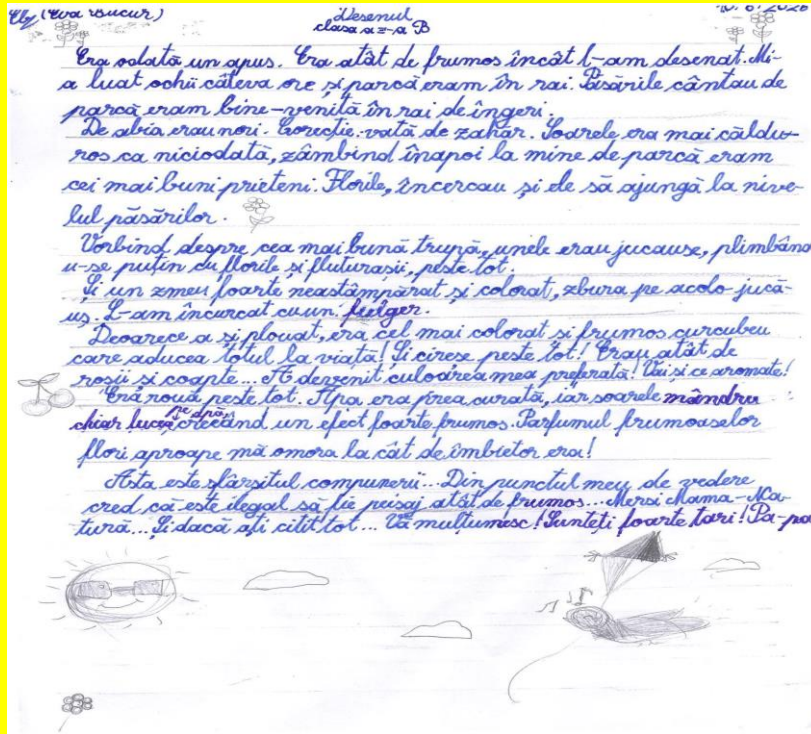 Eby (Eva Bucur)
Desenul
clasa a 2-a B
10. 6. 2026
Era odată un apus. Era atât de frumos încât l-am desenat. Mi-
a luat ochii câteva ore și parcă eram în rai. Păsările cântau de
parcă eram bine-venită în rai de îngeri.
De abia erau nori. Corecție: vată de zahăr. Soarele era mai căldu-
ros ca niciodată, zâmbind înapoi la mine de parcă eram
cei mai buni prieteni. Florile, încercau și ele să ajungă la nive-
lul păsărilor.
Vorbind despre cea mai bună trupă, unele erau jucause, plimbând
u-se puțin cu florile și fluturașii, peste tot.
Și un zmeu foarte neastâmpărat și colorat, zbura pe acolo jucă-
uș. L-am încurcat cu un fulger.
Deoarece a și plouat, era cel mai colorat și frumos curcubeu
care aducea totul la viață! Și cireșe peste tot! Erau atât de
roșii și coapte... A devenit culoarea mea preferată! Văi și ce aromate!
Era rouă peste tot. Apa era prea curată, iar soarele mândru
chiar lucea pe apă, creeând un efect foarte frumos. Parfumul frumoaselor
flori aproape mă omora la cât de îmbietor era!
Asta este sfârșitul compunerii... Din punctul meu de vedere
cred că este ilegal să fie peisaj atât de frumos... Mersi Mama-Na-
tură... Și dacă ați citit tot... Vă mulțumesc! Sunteți foarte tari! Pa-pa